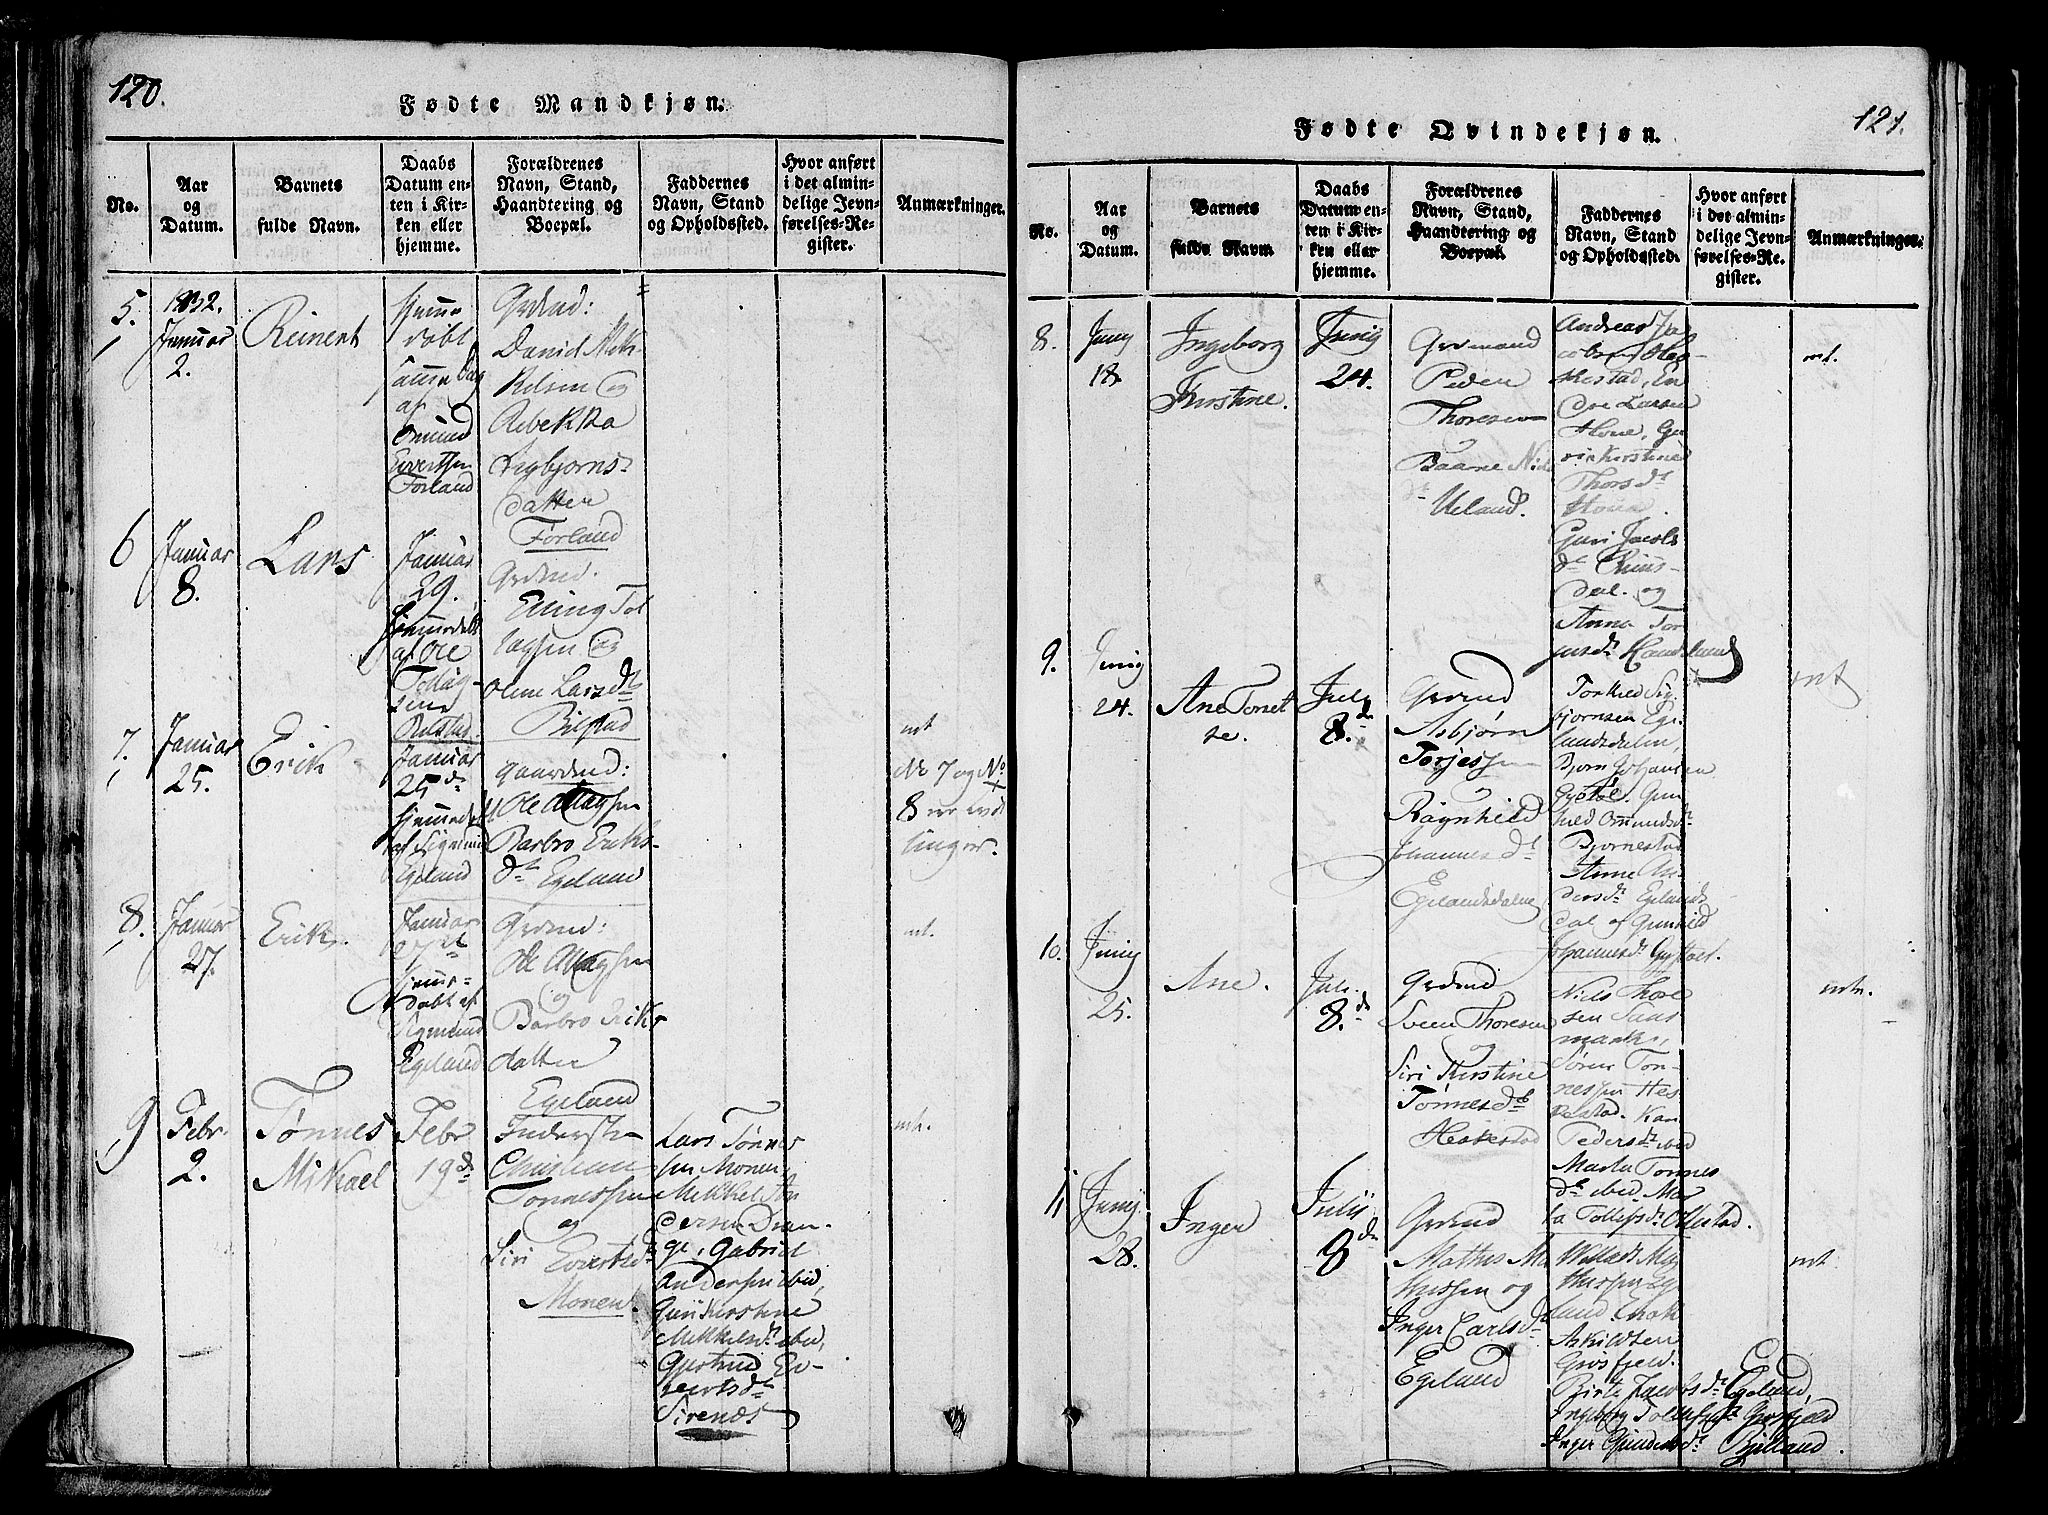 120.
Fødte Mandkjøn.
No.
Aar
og
Datum.
Barnets
fulde Navn.
Daabs
Datum en-
ten i Kir-
ken eller
hjemme.
Forældrenes
Navn, Stand,
Haandtering og
Boepæl.
Faddernes
Navn, Stand
og Opholdssted.
Hvor anført
i det almin-
delige Jevn-
førelses-Re-
gister.
Anmærkninger.
5.
1832.
Januar
2.
Reinert
Hjemme
døbt
samme Dag
af
Omund
Eivertsen
Forland
Grdmd:
David Mik-
kelsen og
Rebekka
Asbjorns-
datter
Forland
6
Januar
8.
Lars
Januar
29.
Hjemmedøbt
af Ole
Tollag-
sen
Grdmd.
Elling Tol
lagsen og
Olene Larsdtr
Bilstad
7.
Januar
25.
Erik
Januar
25de
hjemmedøbt
af Sigmund
Egeland
Gaardmd:
Ole Allagsen
Barbro Eriks-
dtr Egeland
nt
No 7 og No
8 er tvil
linger.
8.
Januar
27.
Erik.
Januar
27de
hjemme-
døbt af
Sigmund
Egeland
Grdmd:
Ole Allagsen
og
Barbro Eriks
datter
Egeland
nt.
9
Febr.
2.
Tønnes
Mikael
Febr
19de
Inderste
Christian
Tønnessen
og
Siri Evertsdr
Monen.
Lars Tønnes
sen Monen,
Mikkel An
dersen Dran-
ge, Gabriel
Andersen ibid,
Guri Kirstine
Mikkelsdr ibid,
Gjertrud Ev-
ertsdtr
Sirenæs
nt.
121.
Fødte Qvindekjøn.
No.
Aar
og
Datum.
Barnets
fulde Navn.
Daabs
Datum en-
ten i Kir-
ken eller
hjemme.
Forældrenes
Navn, Stand,
Haandtering og
Boepæl.
Faddernes
Navn, Stand
og Opholdssted.
Hvor anført
i det almin-
delige Jevn-
førelses-Re-
gister.
Anmærkninger.
8.
Junij
18.
Ingeborg
Kirstine.
Junij
24.
Grdmand
Peder
Thoresen
Baarne Nils
dtr
Ueland.
Andreas Ja
cobsen Hes-
kestad, En
dre Larsen
Hove, Gu
ri Kirstine
Thorsdtr
Hove.
Guri Jacobs
dtr Rims-
dal. og
Anna Tor
jusdr
nt.
9.
Junij
24.
Ane Tonet
te.
July
8de
Grdmd
Asbjørn
Torjessen
Ragnhild
Johannesdtr
Egelandsdalen
Torkild Sig
bjornsen Ege
landsdalen,
Bjorn Johansen
Gystøl. Gun
hild Omundsdtr
Bjornestad
Anne An
dersdr Egelands
dal af Gunhild
Johannesdr Gystøl.
nt
10.
Junij
25.
Ane.
Juli
8.de
Grdmd
Sven Thoresen
og
Siri Kirstine
Tønnesdtr
Heskestad
Niels Thore
sen Saas
mark,
Søren Ton-
nessen Hes
kestad. Kari
Pedersdr ibid
Marta Tonnes
dtr ibid. Mar
ta Tollefsdr Ollestad.
nt.
11
Junij.
28.
Inger
Julij
8de
Grdmd
Mathis Ma
thissen og
Inger Carlsdtr
Egeland
Mat
thissen Eg
land.
Askildsen
Grøsfjeld.
Birte Jacobsdr Egeland,
Ingeborg Tollefsdr Grøsfjeld
Inger Gundersdr Bjelland.
nt.